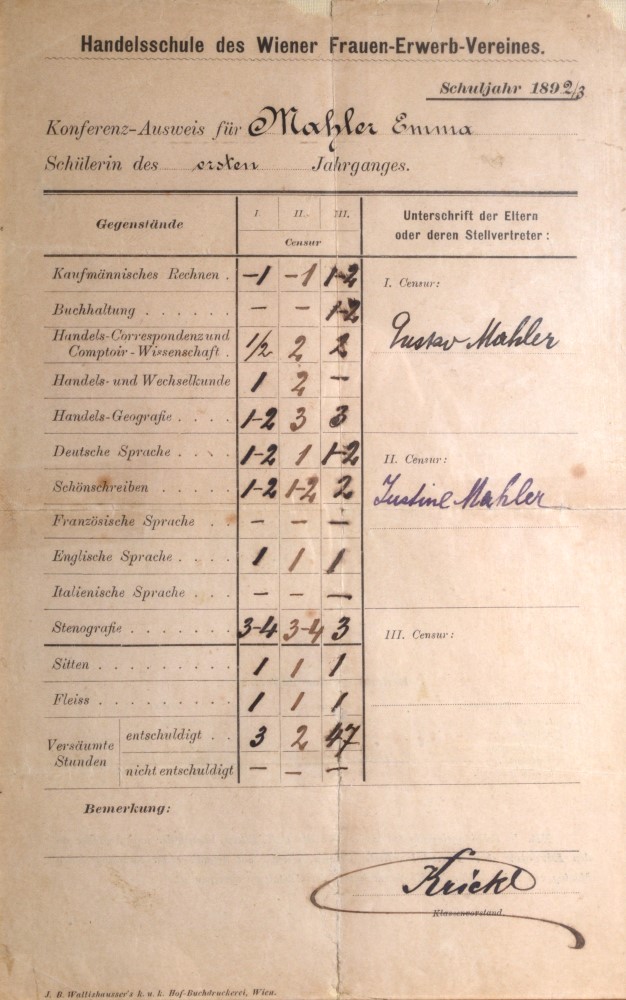 Handelsschule des Wiener Frauen-Erwerb-Vereines.
Schuljahr 1892/3
Konferenz-Ausweis für Mahler Emma
Schülerin des ersten Jahrganges.
Gegenstände I. II. III. Unterschrift der Eltern
Censur oder deren Stellvertreter:
Kaufmännisches Rechnen . -1 -1 1-2 I. Censur:
Buchhaltung . . . . . . - - 1-2
Handels-Correspondenz und
Comptoir-Wissenschaft . 1/2 2 2 Gustav Mahler
Handels- und Wechselkunde 1 2 -
Handels-Geografie . . . . 1-2 3 3
Deutsche Sprache . . . . 1-2 1 1-2 II. Censur:
Schönschreiben . . . . . 1-2 1-2 2 Justine Mahler
Französische Sprache . . - - -
Englische Sprache . . . . 1 1 1
Italienische Sprache . . . - - -
Stenografie . . . . . . . 3-4 3-4 3 III. Censur:
Sitten . . . . . . . . . 1 1 1
Fleiss . . . . . . . . . 1 1 1
Versäumte Stunden entschuldigt . . 3 2 47
nicht entschuldigt - - -
Bemerkung:
Krickl
Klassenvorstand.
J. B. Wallishausser's k. u. k. Hof-Buchdruckerei, Wien.